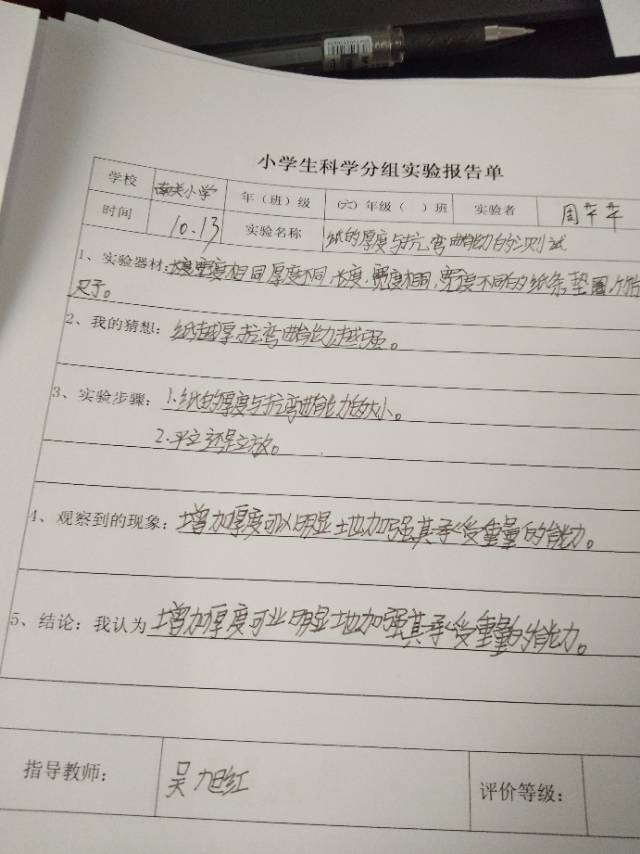 小学生科学分组实验报告单
学校 南关小学 年（班）级 （六）年级（ ）班 实验者 周苹苹
时间 10.13 实验名称 纸的厚度与抗弯曲能力的测试
1、实验器材：长度宽度相同厚度不同，长度，宽度相同，宽度不同的纸条垫圈
尺子。
2、我的猜想：纸越厚，抗弯曲能力越强。
3、实验步骤：1.纸的厚度与抗弯曲能力的大小。
2.平立还是立放。
4、观察到的现象：增加厚度可以明显地加强其承受重量的能力。
5、结论：我认为增加厚度可以明显地加强其承受重量的能力。
指导教师： 吴旭红 评价等级：